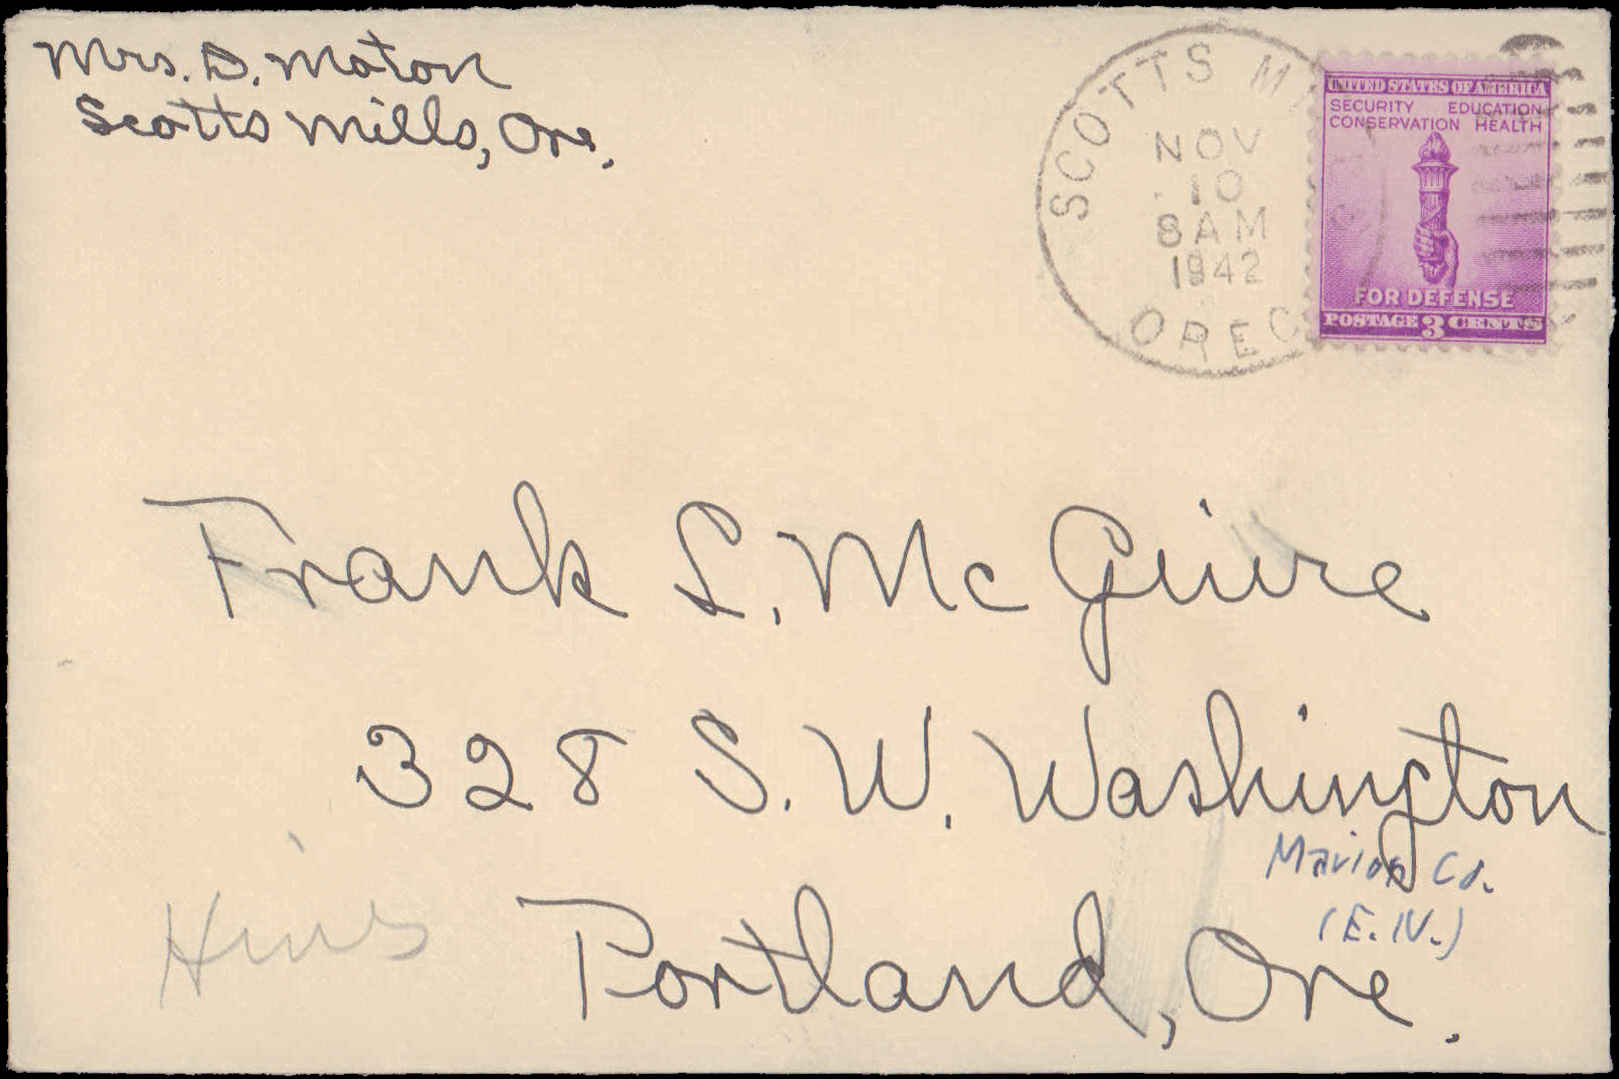 Mrs. D. Moton
Scotts Mills, Ore.
SCOTTS MI
NOV
10
8 AM
1942
OREG
UNITED STATES OF AMERICA
SECURITY EDUCATION
CONSERVATION HEALTH
FOR DEFENSE
POSTAGE 3 CENTS
Frank L. McGuire
328 S. W. Washington
Marion Co.
(E. IV.)
Portland, Ore.